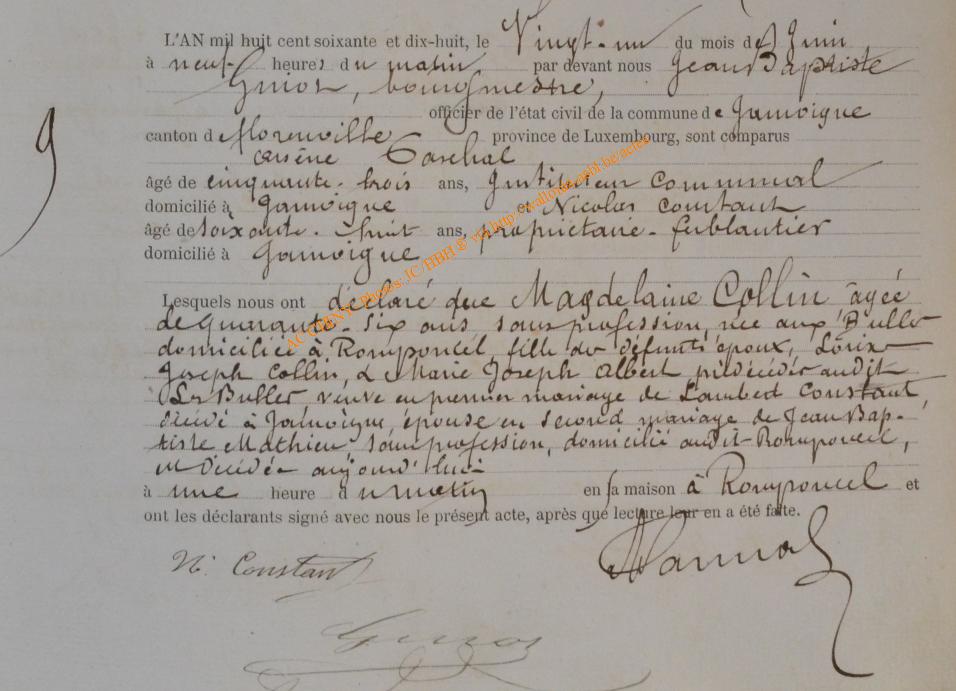 L'AN mil huit cent soixante et dix-huit, le Vingt-un du mois de Juin
à neuf heures du matin par devant nous Jean Baptiste
bourgmestre,
officier de l'état civil de la commune de Jamoigne
canton de Florenville province de Luxembourg, sont comparus
arsène
âgé de cinquante-trois ans, Instituteur Communal
domicilié à Jamoigne et Nicolas Constant
âgé de soixante-huit ans, propriétaire-ferblantier
domicilié à Jamoigne
Lesquels nous ont déclaré que Magdelaine Collin âgée
de quarante-six ans, sans profession, née aux Bulles
domiciliée à Romponcel, fille des défunts époux,
Joseph Collin, & Marie Joseph Albert prédécédés audit
Les Bulles veuve en premier mariage de Lambert Constant,
décédé à Jamoigne, épouse en second mariage de Jean Bap-
tiste Mathieu sans profession, domicilié audit Romponcel,
est décédée aujourd'hui
à une heure du matin en sa maison à Romponcel et
ont les déclarants signé avec nous le présent acte, après que lecture leur en a été faite.
N. Constant
9